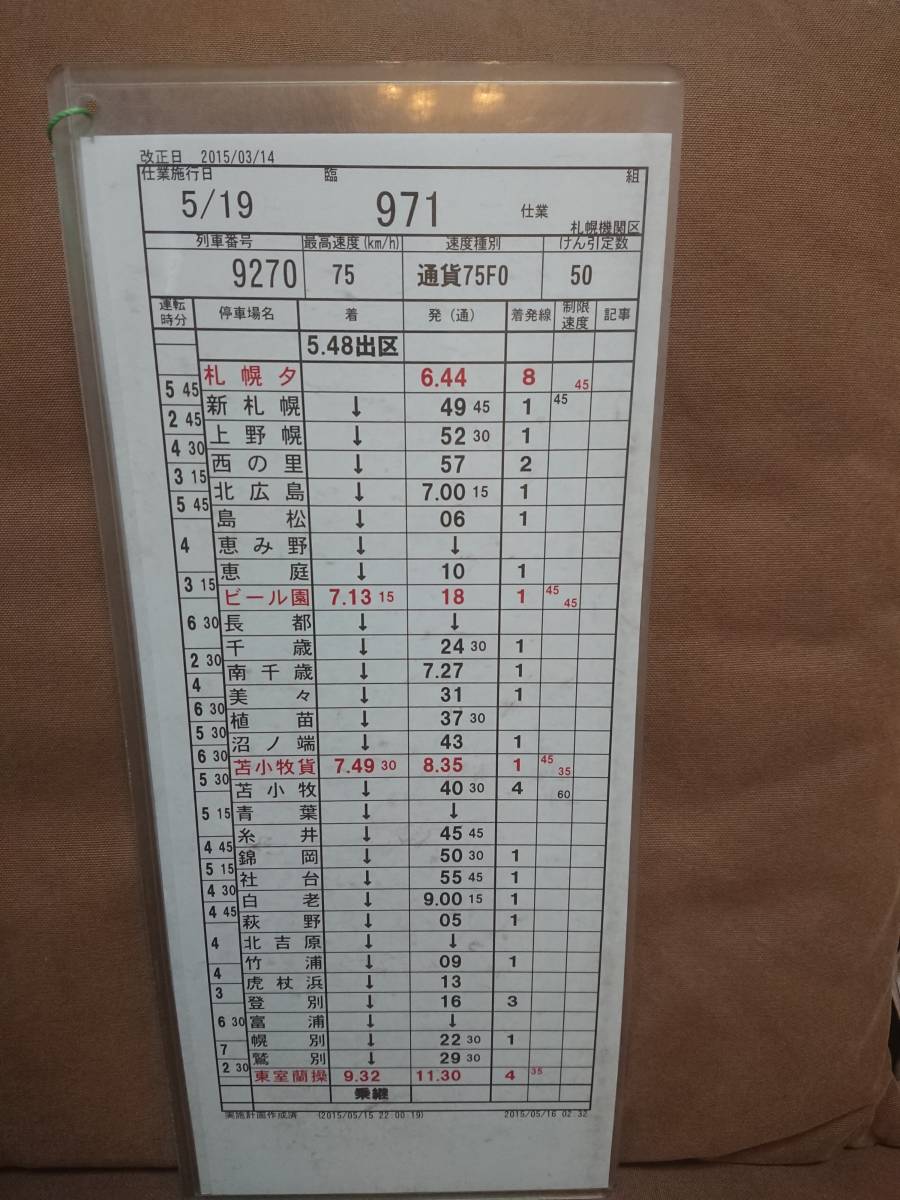 改正日 2015/03/14
仕業施行日 臨 組
5/19 971 仕業 札幌機関区
列車番号 最高速度(km/h) 速度種別 けん引定数
9270 75 通貨75F0 50
運転時分 停車場名 着 発(通) 着発線 制限速度 記事
5.48出区
札幌タ 6.44 8 45
5 45
新札幌 ↓ 49 45 1 45
2 45
上野幌 ↓ 52 30 1
4 30
西の里 ↓ 57 2
3 15
北広島 ↓ 7.00 15 1
5 45
島松 ↓ 06 1
4
恵み野 ↓ ↓
恵庭 ↓ 10 1
3 15
ビール園 7.13 15 18 1 45 45
6 30
長都 ↓ ↓
千歳 ↓ 24 30 1
2 30
南千歳 ↓ 7.27 1
4
美々 ↓ 31 1
6 30
植苗 ↓ 37 30
5 30
沼ノ端 ↓ 43 1
6 30
苫小牧貨 7.49 30 8.35 1 45 35
5 30
苫小牧 ↓ 40 30 4 60
5 15
青葉 ↓ ↓
糸井 ↓ 45 45
4 45
錦岡 ↓ 50 30 1
5 15
社台 ↓ 55 45 1
4 30
白老 ↓ 9.00 15 1
4 45
萩野 ↓ 05 1
4
北吉原 ↓ ↓
竹浦 ↓ 09 1
4
虎杖浜 ↓ 13
3
登別 ↓ 16 3
6 30
富浦 ↓ ↓
幌別 ↓ 22 30 1
7
鷲別 ↓ 29 30
2 30
東室蘭操 9.32 11.30 4 35
乗継
実施計画作成済 (2015/05/15 22:00:19) 2015/05/16 02:32